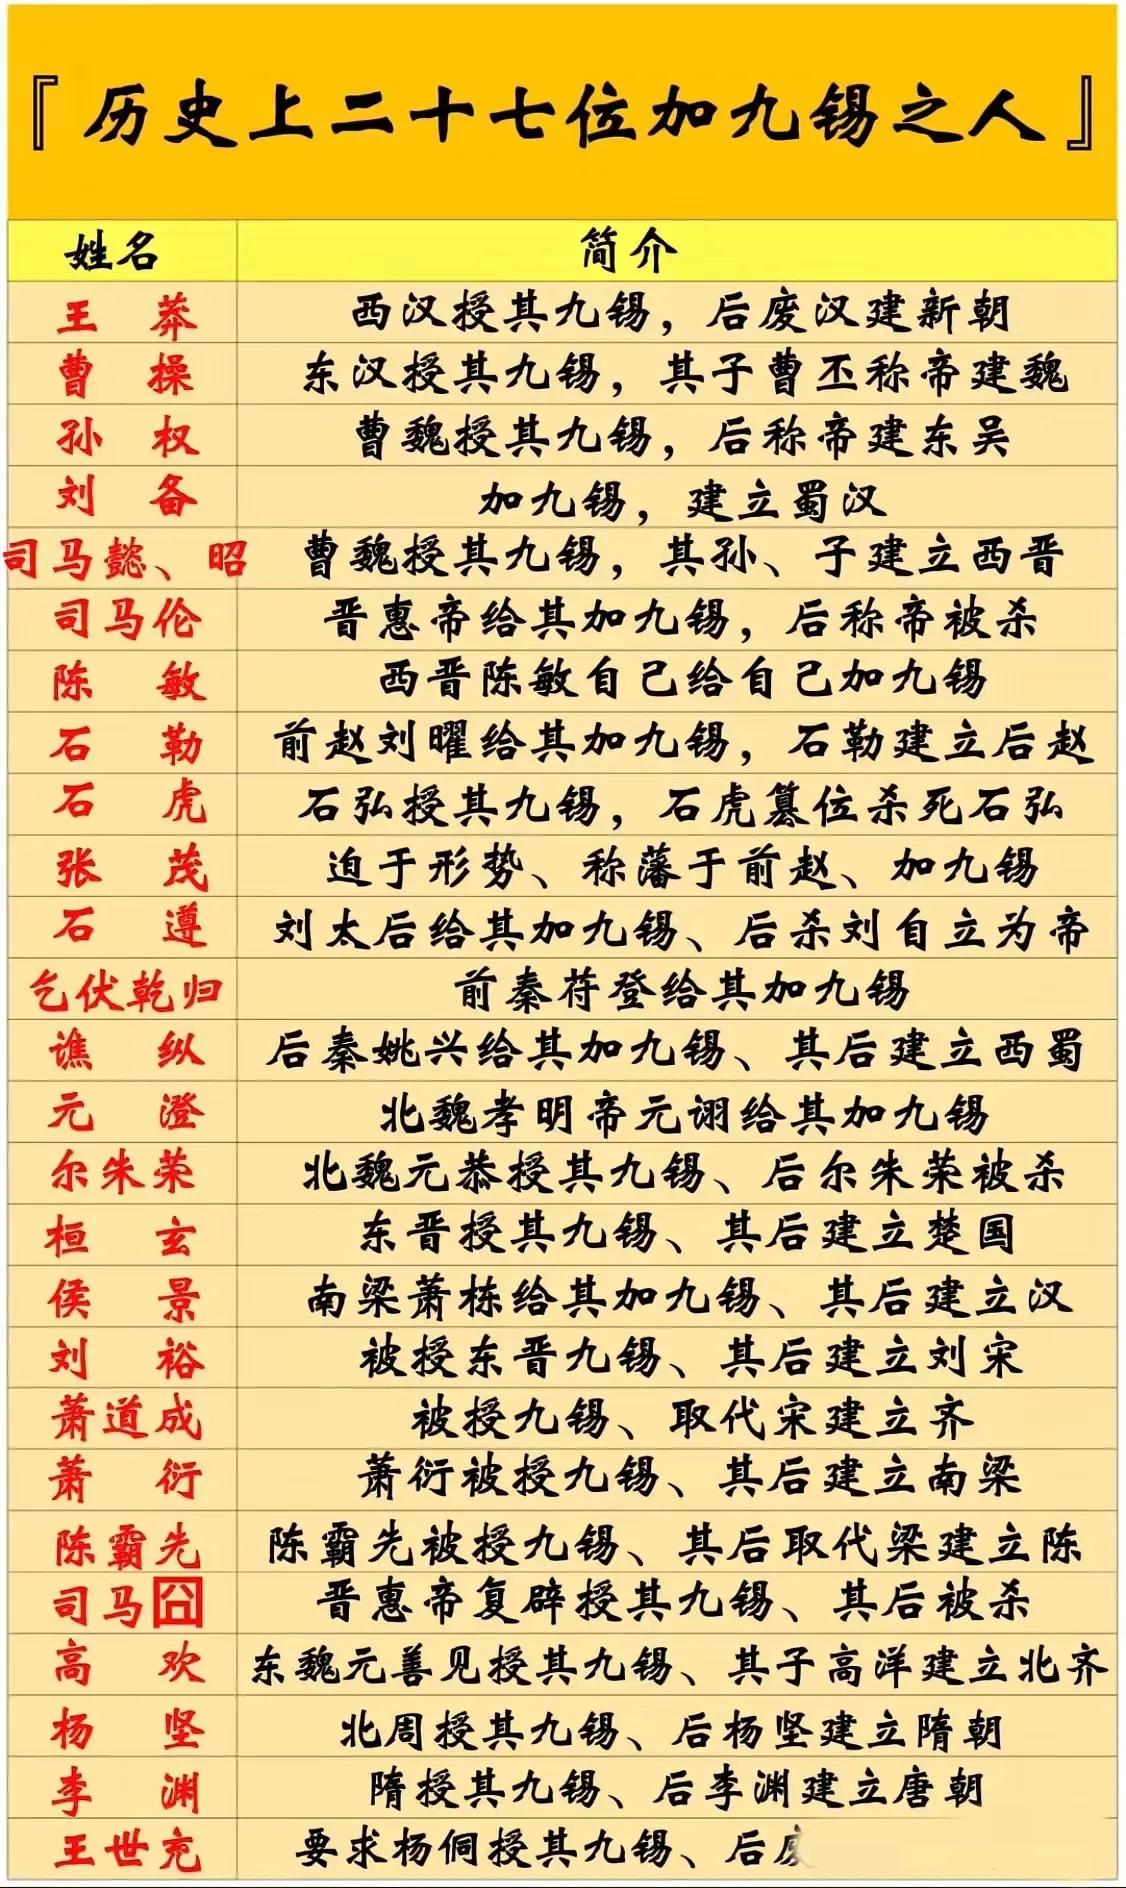 『历史上二十七位加九锡之人』
姓名 简介
王莽 西汉授其九锡，后废汉建新朝
曹操 东汉授其九锡，其子曹丕称帝建魏
孙权 曹魏授其九锡，后称帝建东吴
刘备 加九锡，建立蜀汉
司马懿、昭 曹魏授其九锡，其孙、子建立西晋
司马伦 晋惠帝给其加九锡，后称帝被杀
陈敏 西晋陈敏自己给自己加九锡
石勒 前赵刘曜给其加九锡，石勒建立后赵
石虎 石弘授其九锡，石虎篡位杀死石弘
张茂 迫于形势、称藩于前赵、加九锡
石遵 刘太后给其加九锡、后杀刘自立为帝
乞伏乾归 前秦苻登给其加九锡
谯纵 后秦姚兴给其加九锡、其后建立西蜀
元澄 北魏孝明帝元诩给其加九锡
尔朱荣 北魏元恭授其九锡、后尔朱荣被杀
桓玄 东晋授其九锡、其后建立楚国
侯景 南梁萧栋给其加九锡、其后建立汉
刘裕 被授东晋九锡、其后建立刘宋
萧道成 被授九锡、取代宋建立齐
萧衍 萧衍被授九锡、其后建立南梁
陈霸先 陈霸先被授九锡、其后取代梁建立陈
司马囧 晋惠帝复辟授其九锡、其后被杀
高欢 东魏元善见授其九锡、其子高洋建立北齐
杨坚 北周授其九锡、后杨坚建立隋朝
李渊 隋授其九锡、后李渊建立唐朝
王世充 要求杨侗授其九锡、后废